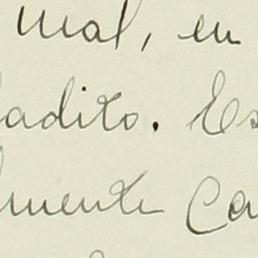 mal, en
adito. Es
mente Ca